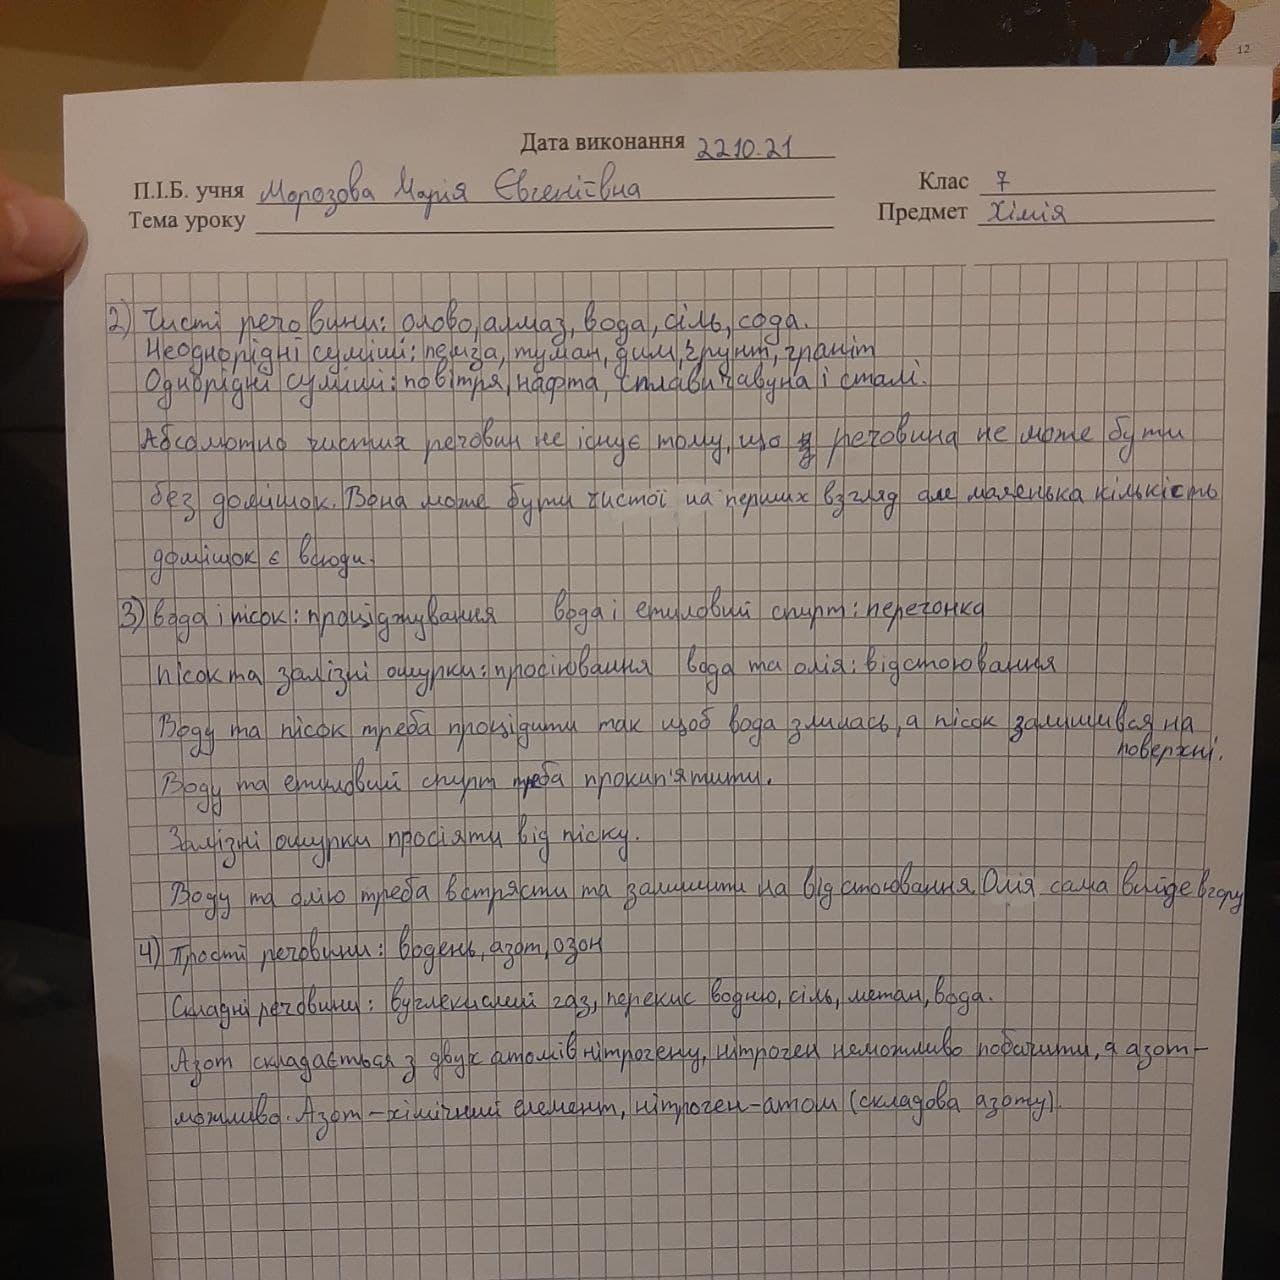 12
Дата виконання 22.10.21
П.І.Б. учня Морозова Марія Євгеніївна Клас 7
Тема уроку Предмет Хімія
2) Чисті речовини: олово, алмаз, вода, сіль, сода.
Неоднорідні суміші: пемза, туман, дим, грунт, граніт
Однорідні суміші: повітря, нафта, сплави чавуна і сталі.
Абсолютно чистих речовин не існує тому, що речовина не може бути
без домішок. Вона може бути чистої на перших взгляд але маленька кількість
домішок є всюди.
3) вода і пісок: проціджування вода і етиловий спирт: перегонка
пісок та залізні ошурки: просіювання вода та олія: відстоювання
Воду та пісок треба процідити так щоб вода злилась, а пісок залишився на
поверхні.
Воду та етиловий спирт треба прокип'ятити.
Залізні ошурки просіяти від піску.
Воду та олію треба встрясти та залишити на відстоювання. Олія сама вийде вгору
4) Прості речовини: водень, азот, озон
Складні речовини: вуглекислий газ, перекис водню, сіль, метан, вода.
Азот складається з двух атомів нітрогену, нітроген неможливо побачити, а азот-
можливо. Азот - хімічний елемент, нітроген - атом (складова азоту).